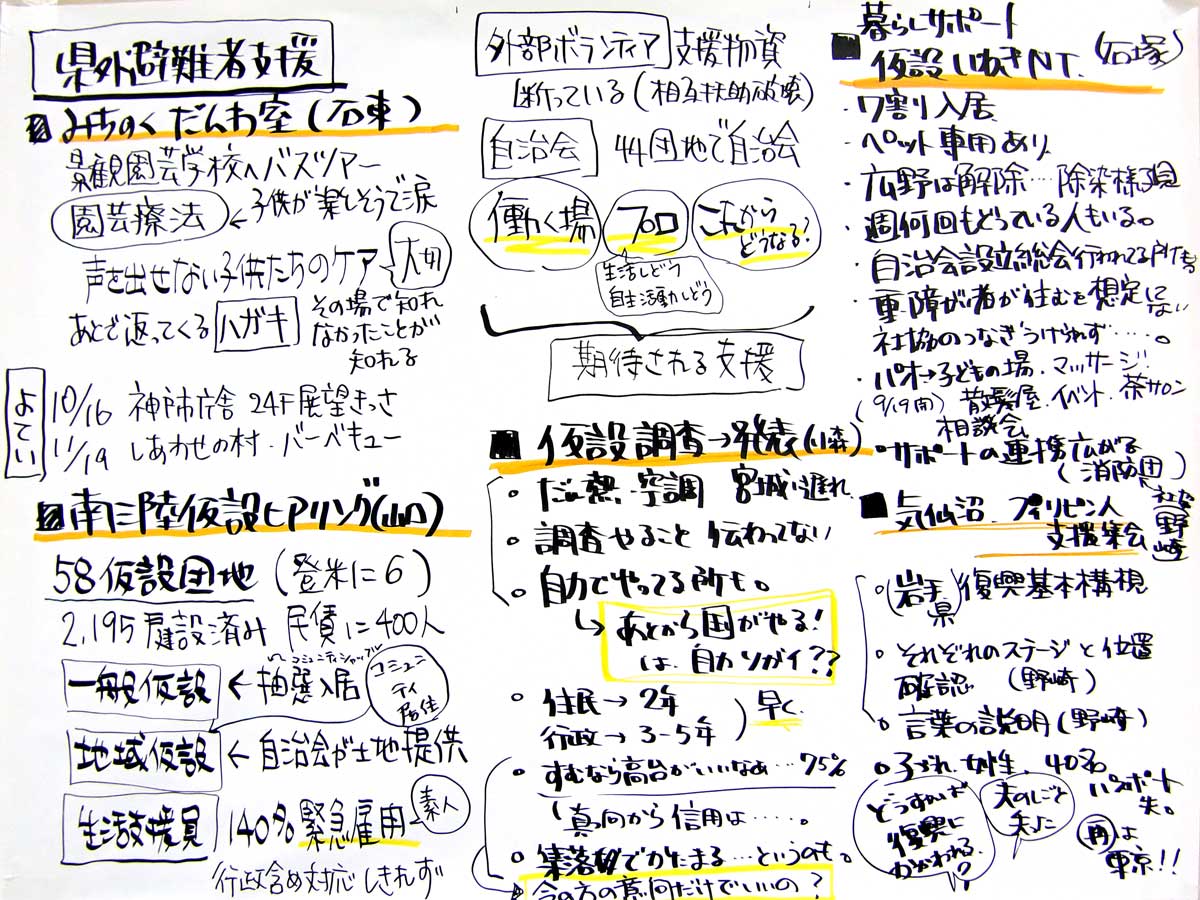 県外避難者支援
みちのくだんわ室(石東)
景観園芸学校へバスツアー
園芸療法 ← 子供が楽しそうで涙
声を出せない子供たちのケア 大切
あとで返ってくる ハガキ その場で知れ
なかったことが
知れる
よてい
10/16 神戸市庁舎 24F展望きっさ
11/19 しあわせの村・バーベキュー
南三陸仮設ヒアリング(山口)
58仮設団地 (登米に6)
2,195戸建設済み 民債に400人
一般仮設 ← 抽選入居
コミュニティシャッフル
コミュニ
ティ
居住
地域仮設 ← 自治会が土地提供
生活支援員 140% 緊急雇用 素人
行政含め対応しきれず
外部ボランティア 支援物資
断っている(相互扶助破壊)
自治会 44団地で自治会
働く場 プロ これから
どうなる?
生活しどう
自生活動しどう
期待される支援
仮設調査→発表(小森)
だん熱・空調 宮城は遅れ
調査やること伝わってない
自力でやってる所も。
↳ あとから国がやる!
は、自力ソガイ??
住民→2年
行政→3-5年 早く
すむなら高台がいいなぁ…75%
真向から信用は……。
集落でかたまる…というのも。
今の方の意向だけでいいの?
暮らしサポート
仮設いわきNT. (石塚)
・7割り入居
・ペット専用あり
・広野は解除…除染様子見
・週何回もどっている人もいる。
・自治会設立総会行われてる所も
・重障がい者が住むを想定にない
社協のつなぎうけられず……。
・パオ→子どもの場・マッサージ・
(9/19開) 散髪屋・イベント・茶サロン
相談会
・サポートの連携広がる
(消防団)
気仙沼 フィリピン人
支援集会
野崎
(岩手県)復興基本構想
それぞれのステージと位置
確認 (野崎)
言葉の説明(野崎)
子づれ、女性、40名
どうすれば
復興に
かかわれる?
夫のしごと
失った
パスポート
失。
再は
東京!!